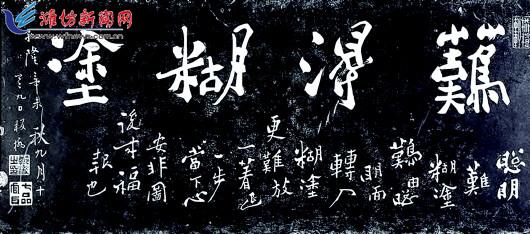 潍坊新闻网
難得糊塗
聰明
難
糊塗
難由聰
明而
轉入
糊塗
更難放
一着退
一步
當下心
安非圖
後來福
報也
隆辛未秋九月十
九日板橋